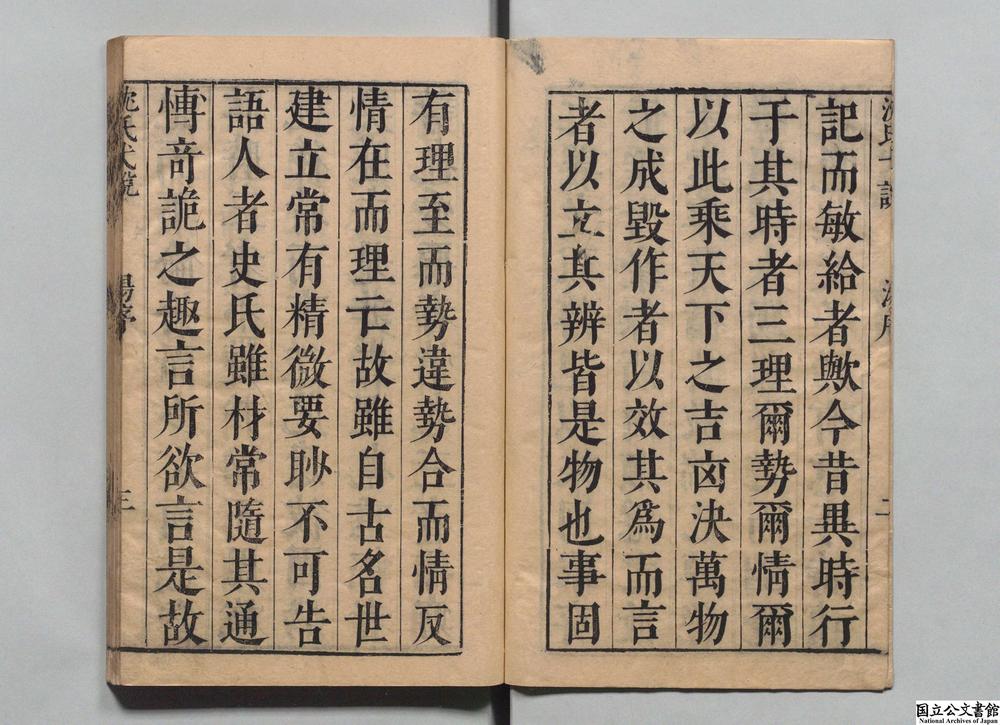 記而敏給者歟今昔異時行
于其時者三理爾勢爾情爾
以此乘天下之吉凶決萬物
之成毀作者以效其爲而言
者以立其辨皆是物也事固
有理至而勢違勢合而情反
情在而理亡故雖自古名世
建立常有精微要眇不可告
語人者史氏雖材常隨其通
博奇詭之趣言所欲言是故
三
国立公文書館
National Archives of Japan